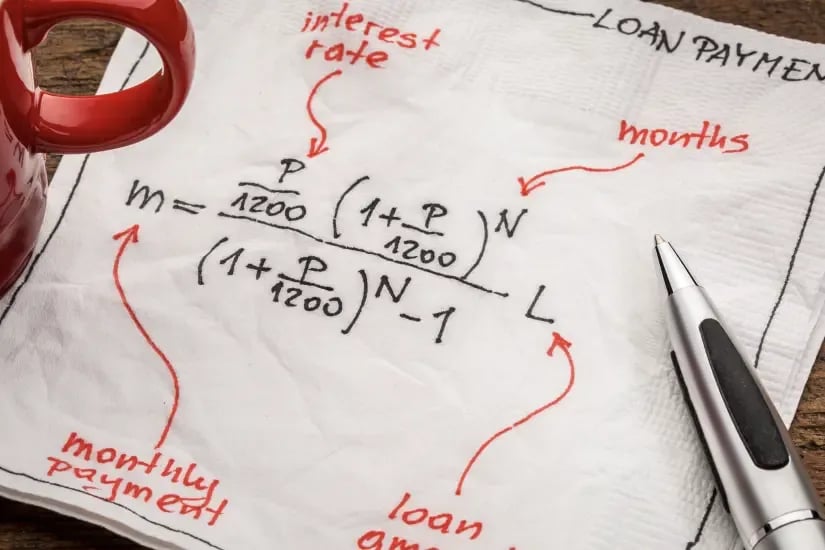 LOAN PAYMEN
interest
rate
months
m = P/1200 (1 + P/1200)^N / (1 + P/1200)^N - 1 L
monthly
payment
loan